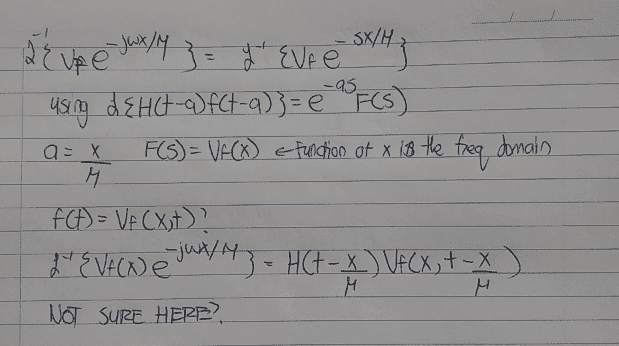 𝓛⁻¹{V_F e^{-jωx/μ}} = 𝓛⁻¹{V_F e^{-sx/μ}}
using 𝓛{H(t-a)f(t-a)} = e^{-as} F(s)
a = x/μ F(s) = V_F(x) ← function of x is the freq domain
f(t) = V_F(x,t)?
𝓛⁻¹{V_F(x) e^{-jωx/μ}} = H(t - x/μ) V_F(x, t - x/μ)
NOT SURE HERE?.